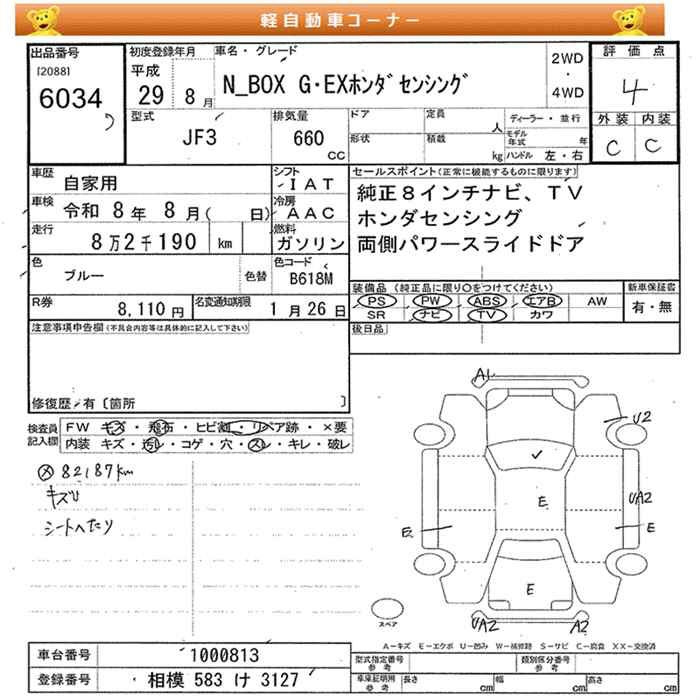 軽自動車コーナー
出品番号
[2088]
6034
初度登録年月
平成
29 8月
車名・グレード
N_BOX G・EXホンダセンシング
2WD
・
4WD
評価点
4
外装 内装
C C
型式
JF3
排気量
660
CC
ドア
形状
定員
人
積載
kg
ディーラー・並行
モデル年式 年
ハンドル 左・右
車歴
自家用
シフト
IAT
車検
令和 8年 8月( 日)
冷房
AAC
走行
8万2千190 km
燃料
ガソリン
色
ブルー
色替
色コード
B618M
R券
8,110円
名変通知期限
1月26日
セールスポイント(正常に機能するものに限ります)
純正8インチナビ、TV
ホンダセンシング
両側パワースライドドア
装備品(純正品に限り○をつけてください)
PS PW ABS エアB AW
SR ナビ TV カワ
新車保証書
有・無
後日品
注意事項申告欄(不具合内容等は具体的に記入して下さい)
修復歴 有〔箇所 〕
検査員
記入欄
FW キズ・飛石・ヒビ割・リペア跡・×要
内装 キズ・汚レ・コゲ・穴・スレ・キレ・破レ
82187km
キズU
シートヘたり
A1
U2
UA2
E
E
E
E
UA2
A2
スペア
A－キズ E－エクボ U－凹み W－補修跡 S－サビ C－腐食 XX－交換済
車台番号
1000813
登録番号
相模 583 け 3127
型式指定番号
参考
類別区分番号
参考
車庫証明用
参考
長さ cm 幅 cm 高さ cm